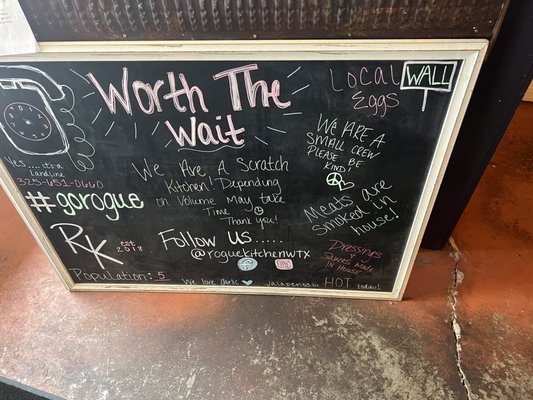 Worth The
Wait
Local
Eggs
WALL
Yes.... it's a
landline
325-651-0660
#gorogue
RK
est
2013
Population: 5
We Are A Scratch
Kitchen! Depending
on Volume May take
Time
Thank you!
Follow Us ....
@roguekitchenwtx
We love garlic
Jalapenos are HOT today!
We Are a
small crew
Please be
Kind!
Meats are
smoked in
house!
Dressings
Sauces Made
In House